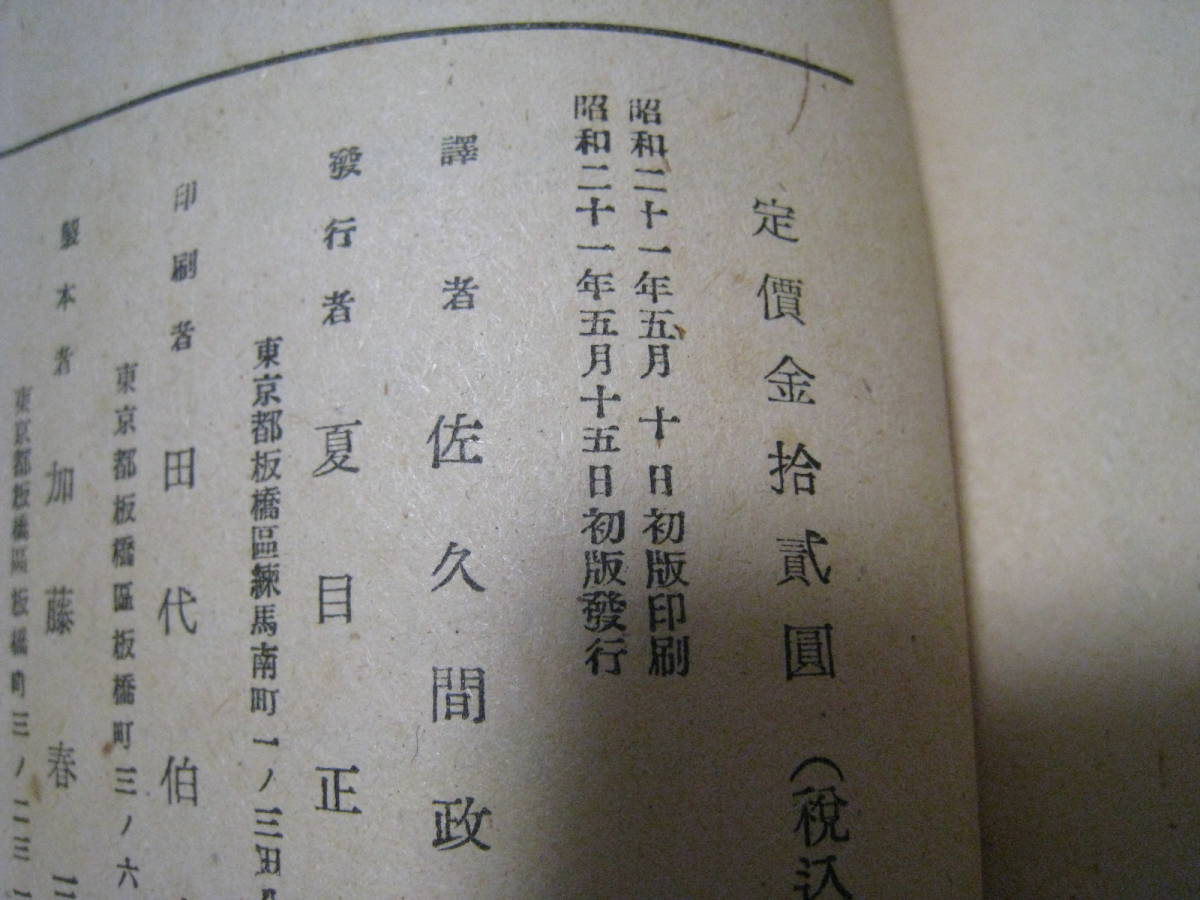 定價金拾貳圓(稅込
昭和二十一年五月十日初版印刷
昭和二十一年五月十五日初版發行
譯者 佐久間政
發行者 夏目正
東京都板橋區練馬南町一ノ三
印刷者 田代伯
東京都板橋區板橋町三ノ六
製本者 加藤春
東京都板橋區板橋町三ノ二三